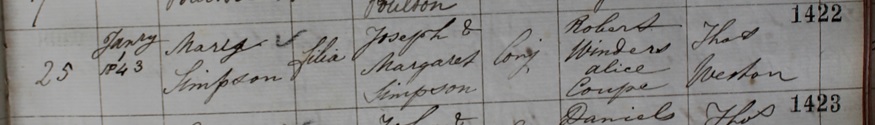 Poulton
1422
25 Janry 1 1843 Mary Simpson filia Joseph & Margaret Simpson Conj Robert Winders alice Coupe Thos Weston
& Daniels Thos 1423